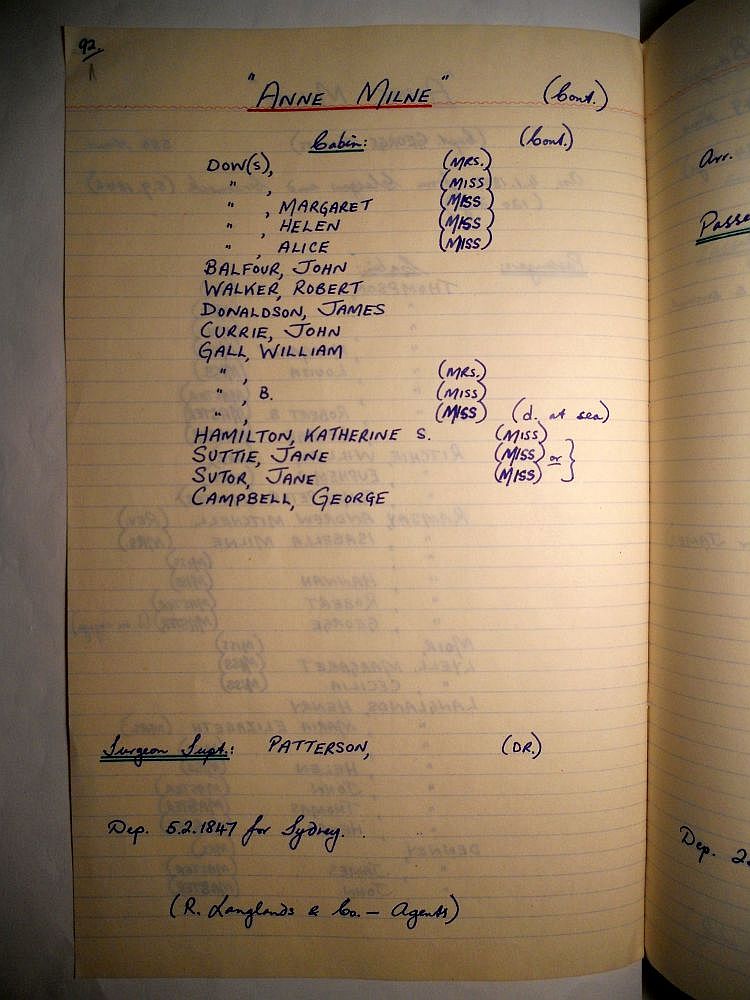 92.
"ANNE MILNE" (Cont.)
Cabin: (Cont.)
DOW(S), (MRS.)
" , (MISS)
" , MARGARET (MISS)
" , HELEN (MISS)
" , ALICE (MISS)
BALFOUR, JOHN
WALKER, ROBERT
DONALDSON, JAMES
CURRIE, JOHN
GALL, WILLIAM
" , (MRS.)
" , B. (MISS)
" , (MISS) (d. at sea)
HAMILTON, KATHERINE S. (MISS)
SUTTIE, JANE (MISS) or }
SUTOR, JANE (MISS)
CAMPBELL, GEORGE
Surgeon Supt.: PATTERSON, (DR.)
Dep. 5.2.1847 for Sydney.
(R. Langlands & Co. – Agents)
Arr.
Passe
Dep. 2